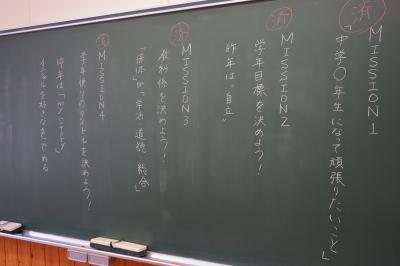 済
MISSION1
「中学〇年生になって頑張りたいこと」
済
MISSION2
学年目標を決めよう！
昨年は“自立”
済
MISSION3
教科係を決めよう！
「保体」か「学活 道徳 総合」
MISSION4
学年便りのタイトルを決めよう！
昨年は「my story」